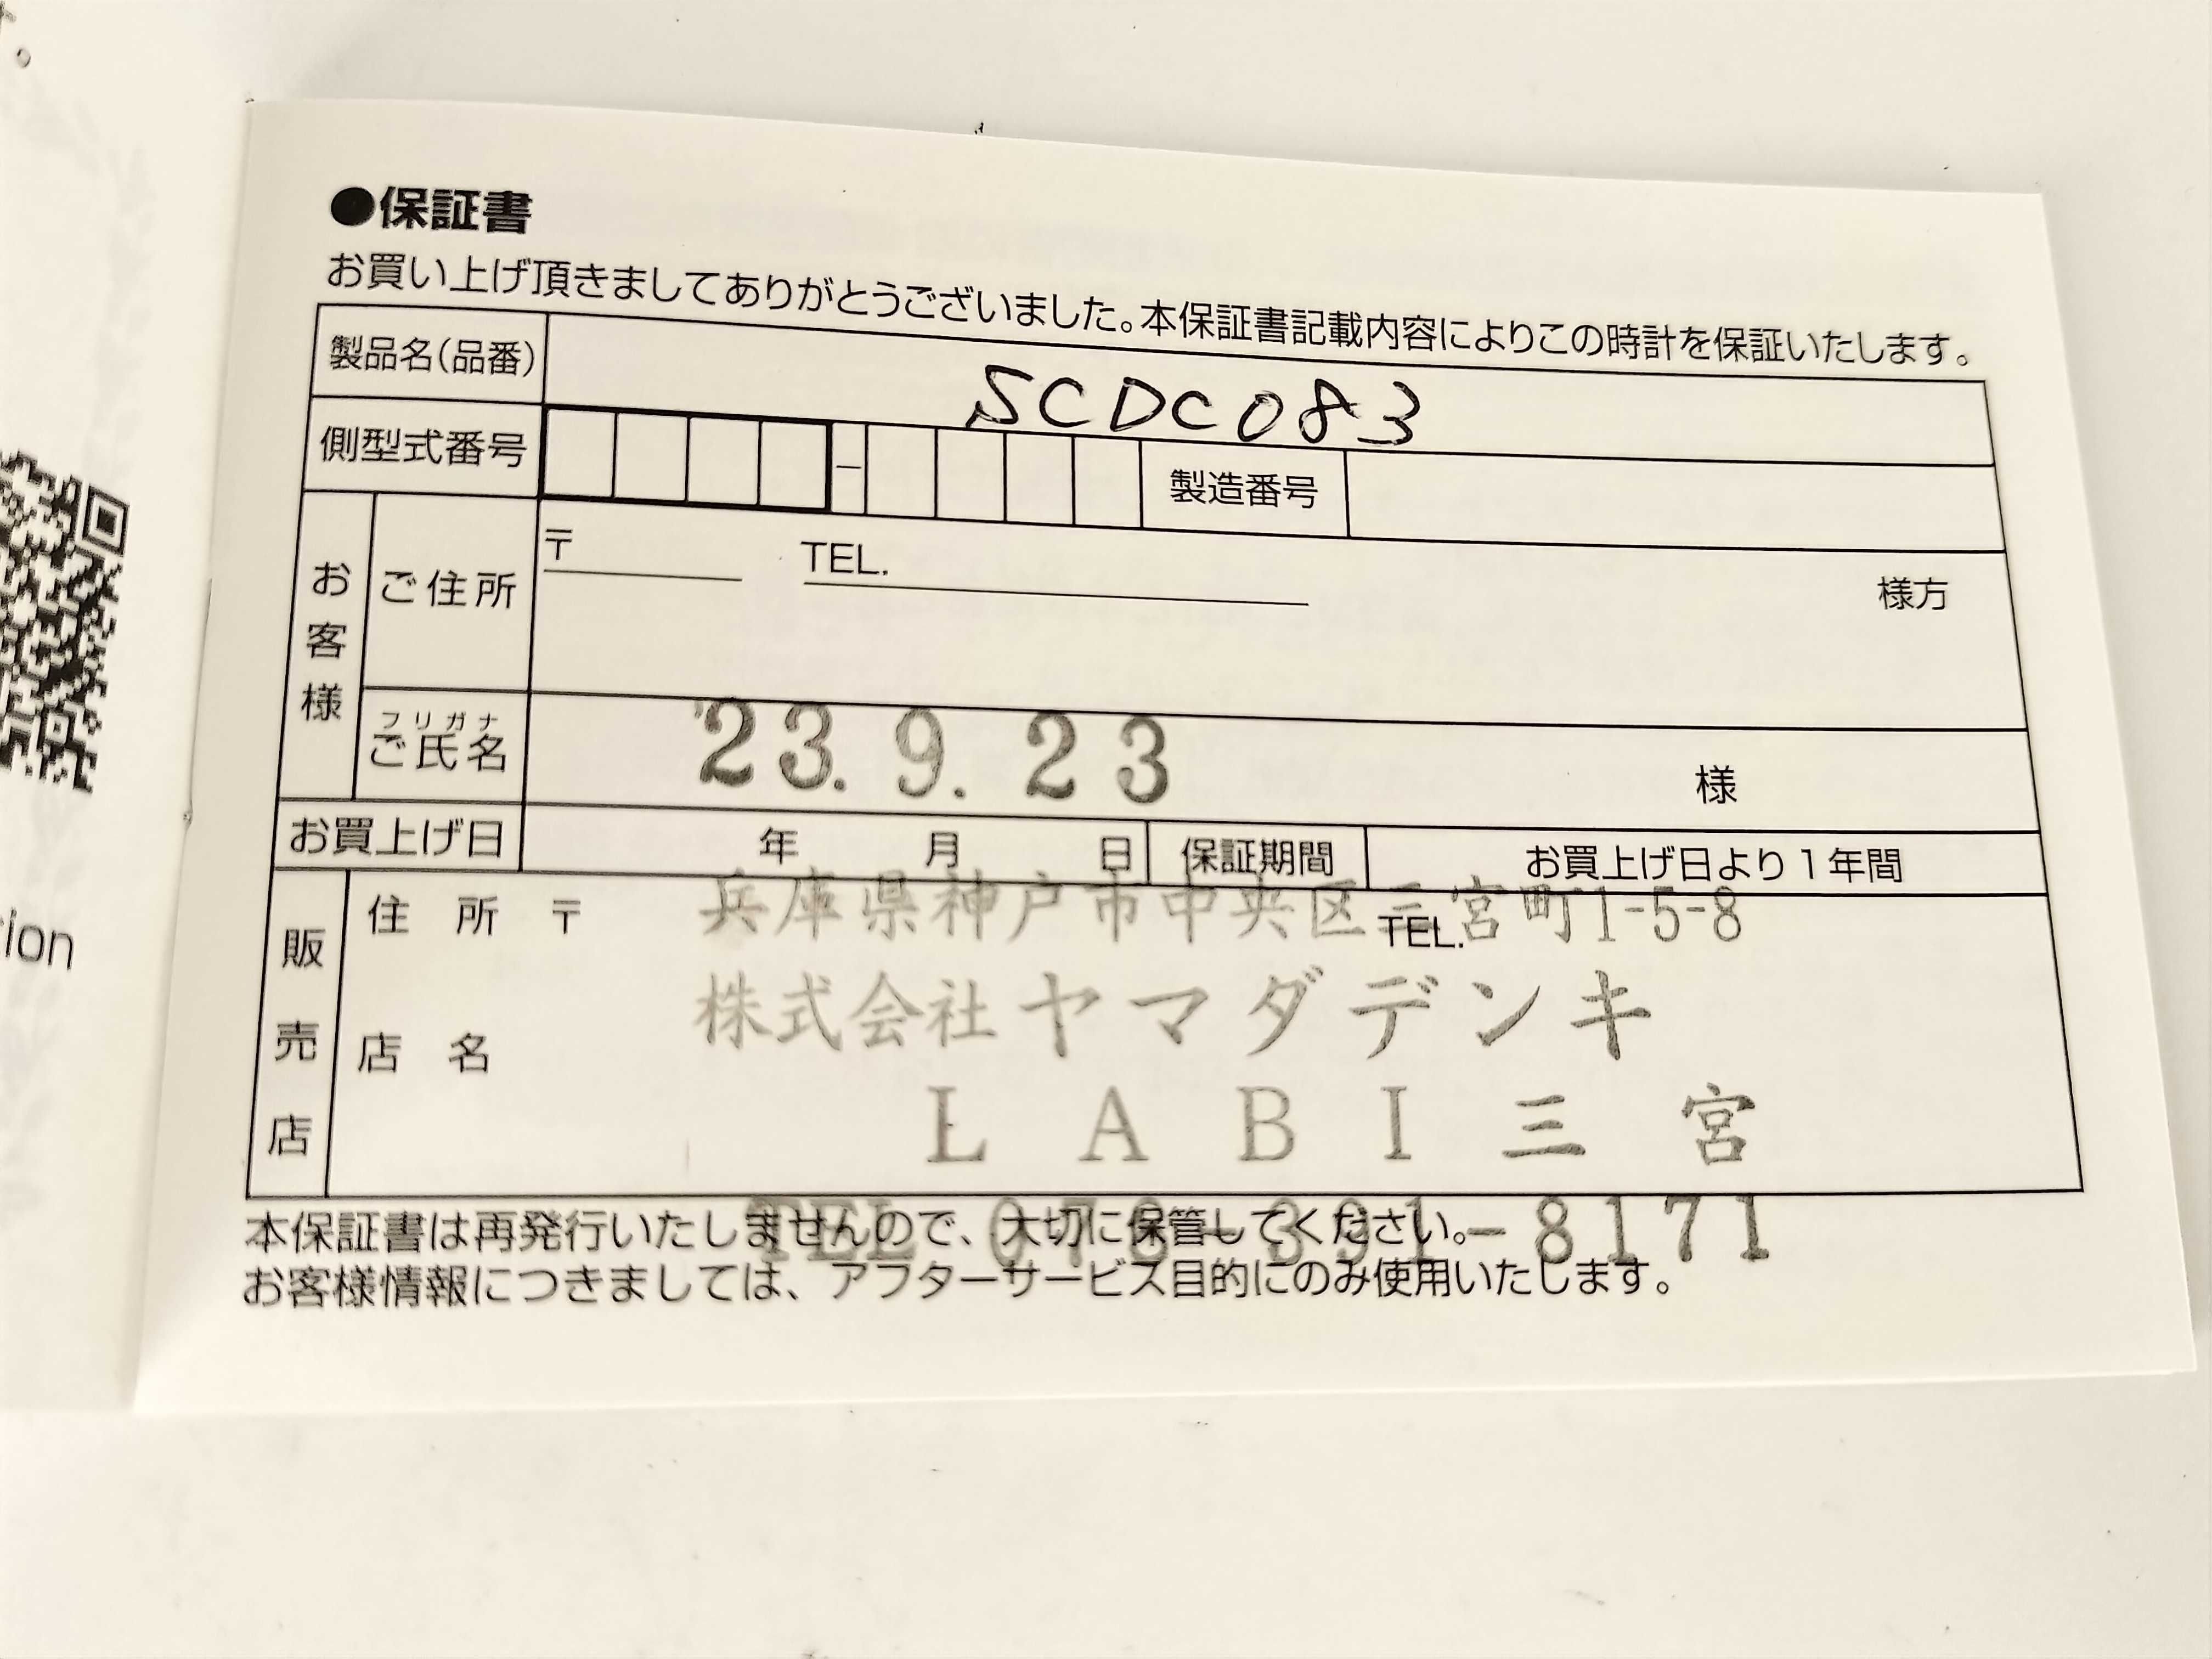 ●保証書
お買い上げ頂きましてありがとうございました。本保証書記載内容によりこの時計を保証いたします。
製品名(品番) SCDC083
側型式番号 - 製造番号
お客様
ご住所 〒 TEL. 様方
フリガナ
ご氏名 様
'23. 9. 23
お買上げ日 年 月 日 保証期間 お買上げ日より1年間
販売店
住所 〒 TEL.
兵庫県神戸市中央区三宮町1-5-8
株式会社ヤマダデンキ
店名
LABI三宮
TEL 078-391-8171
本保証書は再発行いたしませんので、大切に保管してください。
お客様情報につきましては、アフターサービス目的にのみ使用いたします。